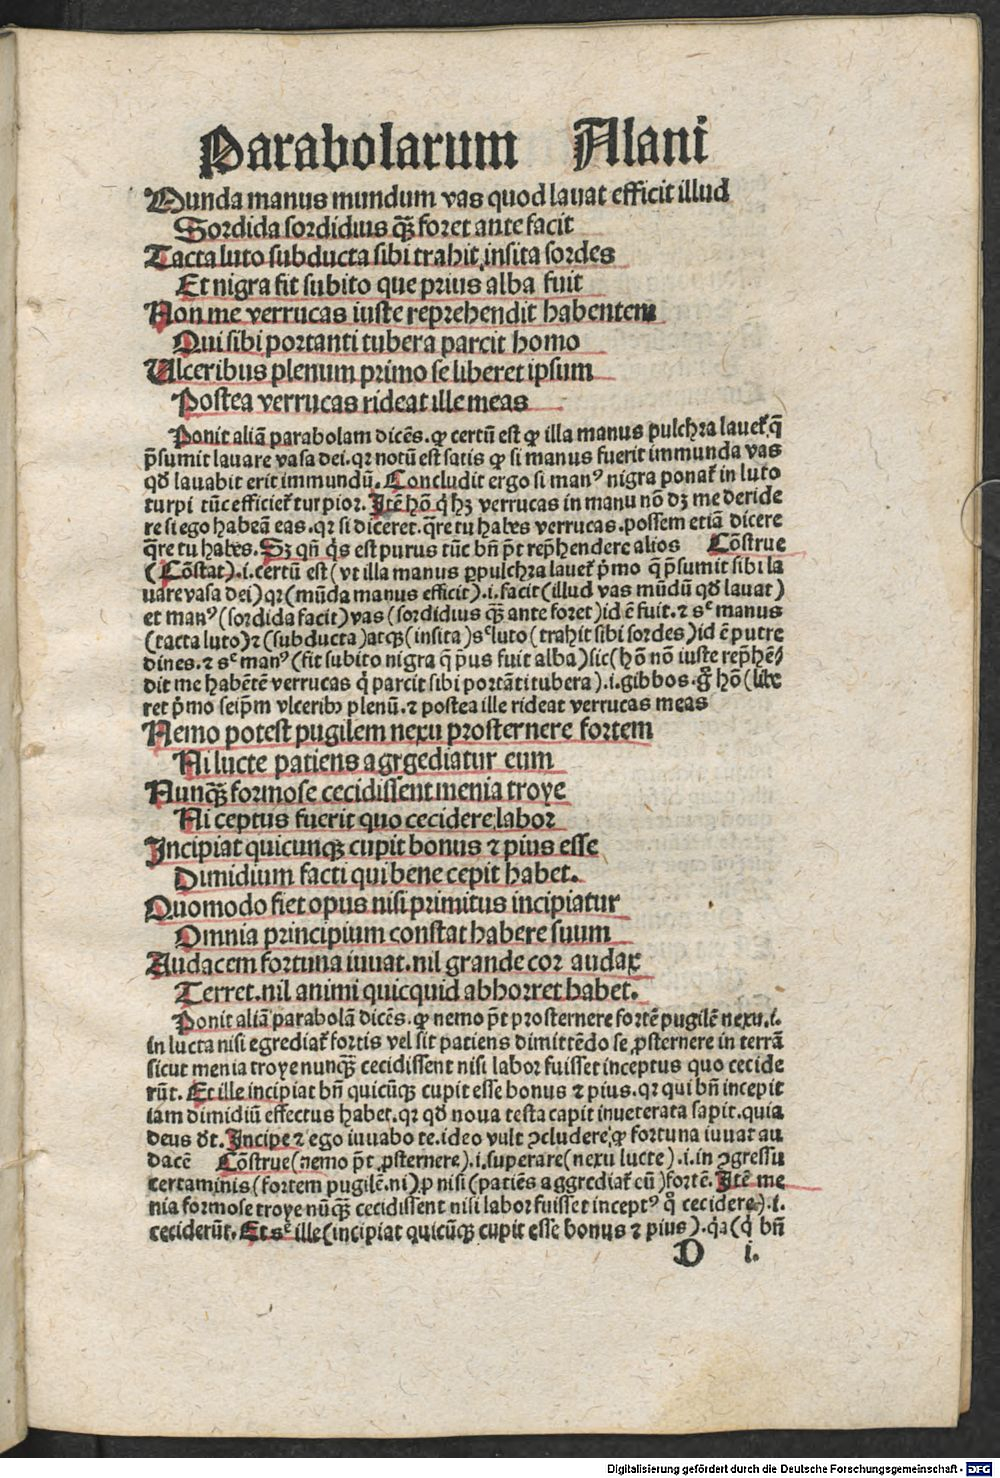 Parabolarum Alani
Munda manus mundum vas quod lauat efficit illud
Sordida sordidius qᷓꝫ foret ante facit
Tacta luto subducta sibi trahit insita sordes
Et nigra fit subito que prius alba fuit
Non me verrucas iuste reprehendit habentem
Qui sibi portanti tubera parcit homo
Ulceribus plenum primo se liberet ipsum
Postea verrucas rideat ille meas
Ponit aliā parabolam dicēs. ꝙ certū est ꝙ illa manus pulchra lauet᷑ q̄
p̄sumit lauare vasa dei. qꝛ notū est satis ꝙ si manus fuerit immunda vas
qd̄ lauabit erit immundū. Concludit ergo si manꝰ nigra ponat᷑ in luto
turpi tūc efficiet᷑ turpior. Itē hō q̇ hꝫ verrucas in manu nō dꝫ me deride
re si ego habeā eas. qꝛ si diceret. q̄re tu habes verrucas. possem etiā dicere
q̄re tu habes. Sꝫ qn̄ q̇s est purus tūc bn̄ p̄t rep̄hendere alios Cōstrue
(Cōstat) .i. certū est (vt illa manus ꝑpulchra lauet᷑ p̄mo q̄ p̄sumit sibi la
uare vasa dei) qꝛ (mūda manus efficit) .i. facit (illud vas mūdū qd̄ lauat)
et manꝰ (sordida facit) vas (sordidius qᷓꝫ ante foret) id ē fuit. ⁊ sᶜ manus
(tacta luto) ⁊ (subducta) atqꝫ (insita) sᶜ luto (trahit sibi sordes) id ē putre
dines. ⁊ sᶜ manꝰ (fit subito nigra q̄ p̄us fuit alba) sic (hō nō iuste rep̄hē⸗
dit me habētē verrucas q̇ parcit sibi portāti tubera) .i. gibbos. gͦ hō (libe
ret p̄mo seip̄m vlceribꝰ plenū. ⁊ postea ille rideat verrucas meas
Nemo potest pugilem nexu prosternere fortem
Ni lucte patiens agrgediatur eum
Nunqᷓꝫ formose cecidissent menia troye
Ni ceptus fuerit quo cecidere labor
Incipiat quicunqꝫ cupit bonus ⁊ pius esse
Dimidium facti qui bene cepit habet.
Quomodo fiet opus nisi primitus incipiatur
Omnia principium constat habere suum
Audacem fortuna iuuat. nil grande cor audax
Terret. nil animi quicquid abhorret habet.
Ponit aliā parabolā dicēs. ꝙ nemo p̄t prosternere fortē pugilē nexu .i.
in lucta nisi egrediat᷑ fortis vel sit patiens dimittēdo se ꝓsternere in terrā
sicut menia troye nunqᷓꝫ cecidissent nisi labor fuisset inceptus quo cecide
rūt. Et ille incipiat bn̄ quicūqꝫ cupit esse bonus ⁊ pius. qꝛ qui bn̄ incepit
iam dimidiū effectus habet. qꝛ qd̄ noua testa capit inueterata sapit. quia
deus dt̄. Incipe ⁊ ego iuuabo te. ideo vult ꝯcludere ꝙ fortuna iuuat au
dacē Cōstrue (nemo p̄t ꝓsternere) .i. superare (nexu lucte) .i. in ꝯgressu
certaminis (fortem pugilē. ni) ꝓ nisi (patiēs aggrediat᷑ eū) fortē. Itē me
nia formose troye nūqᷓꝫ cecidissent nisi labor fuisset inceptꝰ qͦ cecidere) .i.
ceciderūt. Et sᶜ ille (incipiat quicūqꝫ cupit esse bonus ⁊ pius) .q̇a (q̇ bn̄
D i.
Digitalisierung gefördert durch die Deutsche Forschungsgemeinschaft - DFG